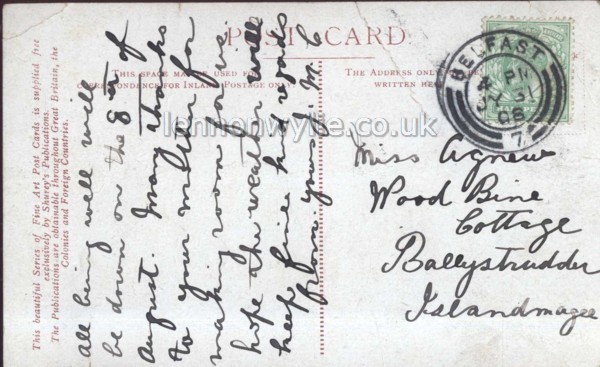 This beautiful Series of Fine Art Post Cards is supplied free
exclusively by Shurey's Publications.
The Publications are obtainable throughout Great Britain, the
Colonies and Foreign Countries.
POST CARD
This space may be used for
correspondence for Inland Postage only.
The Address only
written he
BELFAST
PM
31
08
7
lennonwylie.co.uk
all being well will
be down on the 8th of
August. Many thanks
to your mother for
making room for us
hope the weather will
keep fine kind regards
from yours M C
Miss Agnew
Wood Bine
Cottage
Ballystrudder
Islandmagee